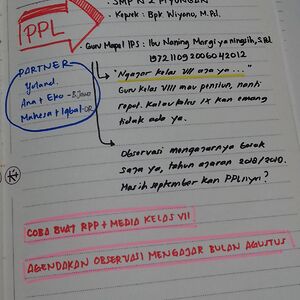 SMP N 2 PIYUNGAN
Kepsek : Bpk Wiyono, M.Pd.
PPL
Guru Mapel IPS : Ibu Naning Margiyaningsih, S.Pd.
197211092006042012
PARTNER
Yuland.
Ana + Eko - B.Jawa
Mahesa + Iqbal - OR
"Ngajar kelas VII aja ya ..."
Guru kelas VIII mau pensiun, nanti
repot. Kalau kelas IX kan emang
tidak ada ya.
Observasi mengajarnya besok
saja ya, tahun ajaran 2018/2019.
Masih september kan PPLnya?
COBA BUAT RPP + MEDIA KELAS VII
AGENDAKAN OBSERVASI MENGAJAR BULAN AGUSTUS